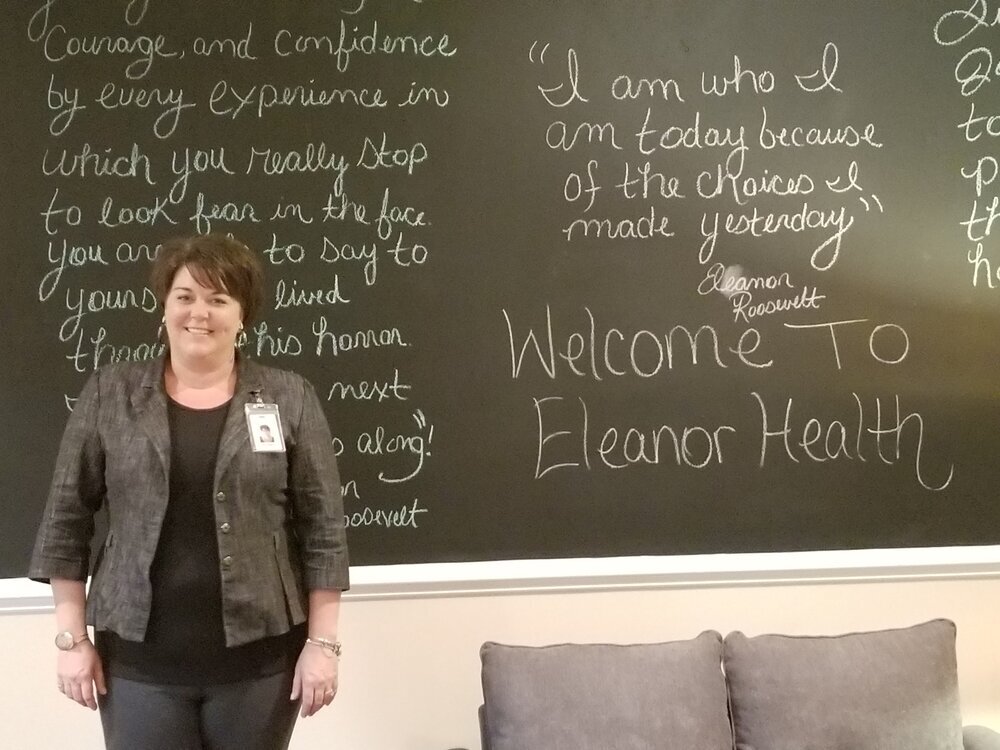 Courage, and confidence
by every experience in
which you really stop
to look fear in the face.
you are to say to
yours lived
this horror.
next
along"!
oosevelt
"I am who I
am today because
of the choices I
made yesterday"
Eleanor
Roosevelt
Welcome To
Eleanor Health
to
p
th
h